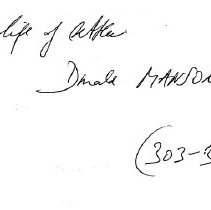 life of
Donald MANSON
(303-3